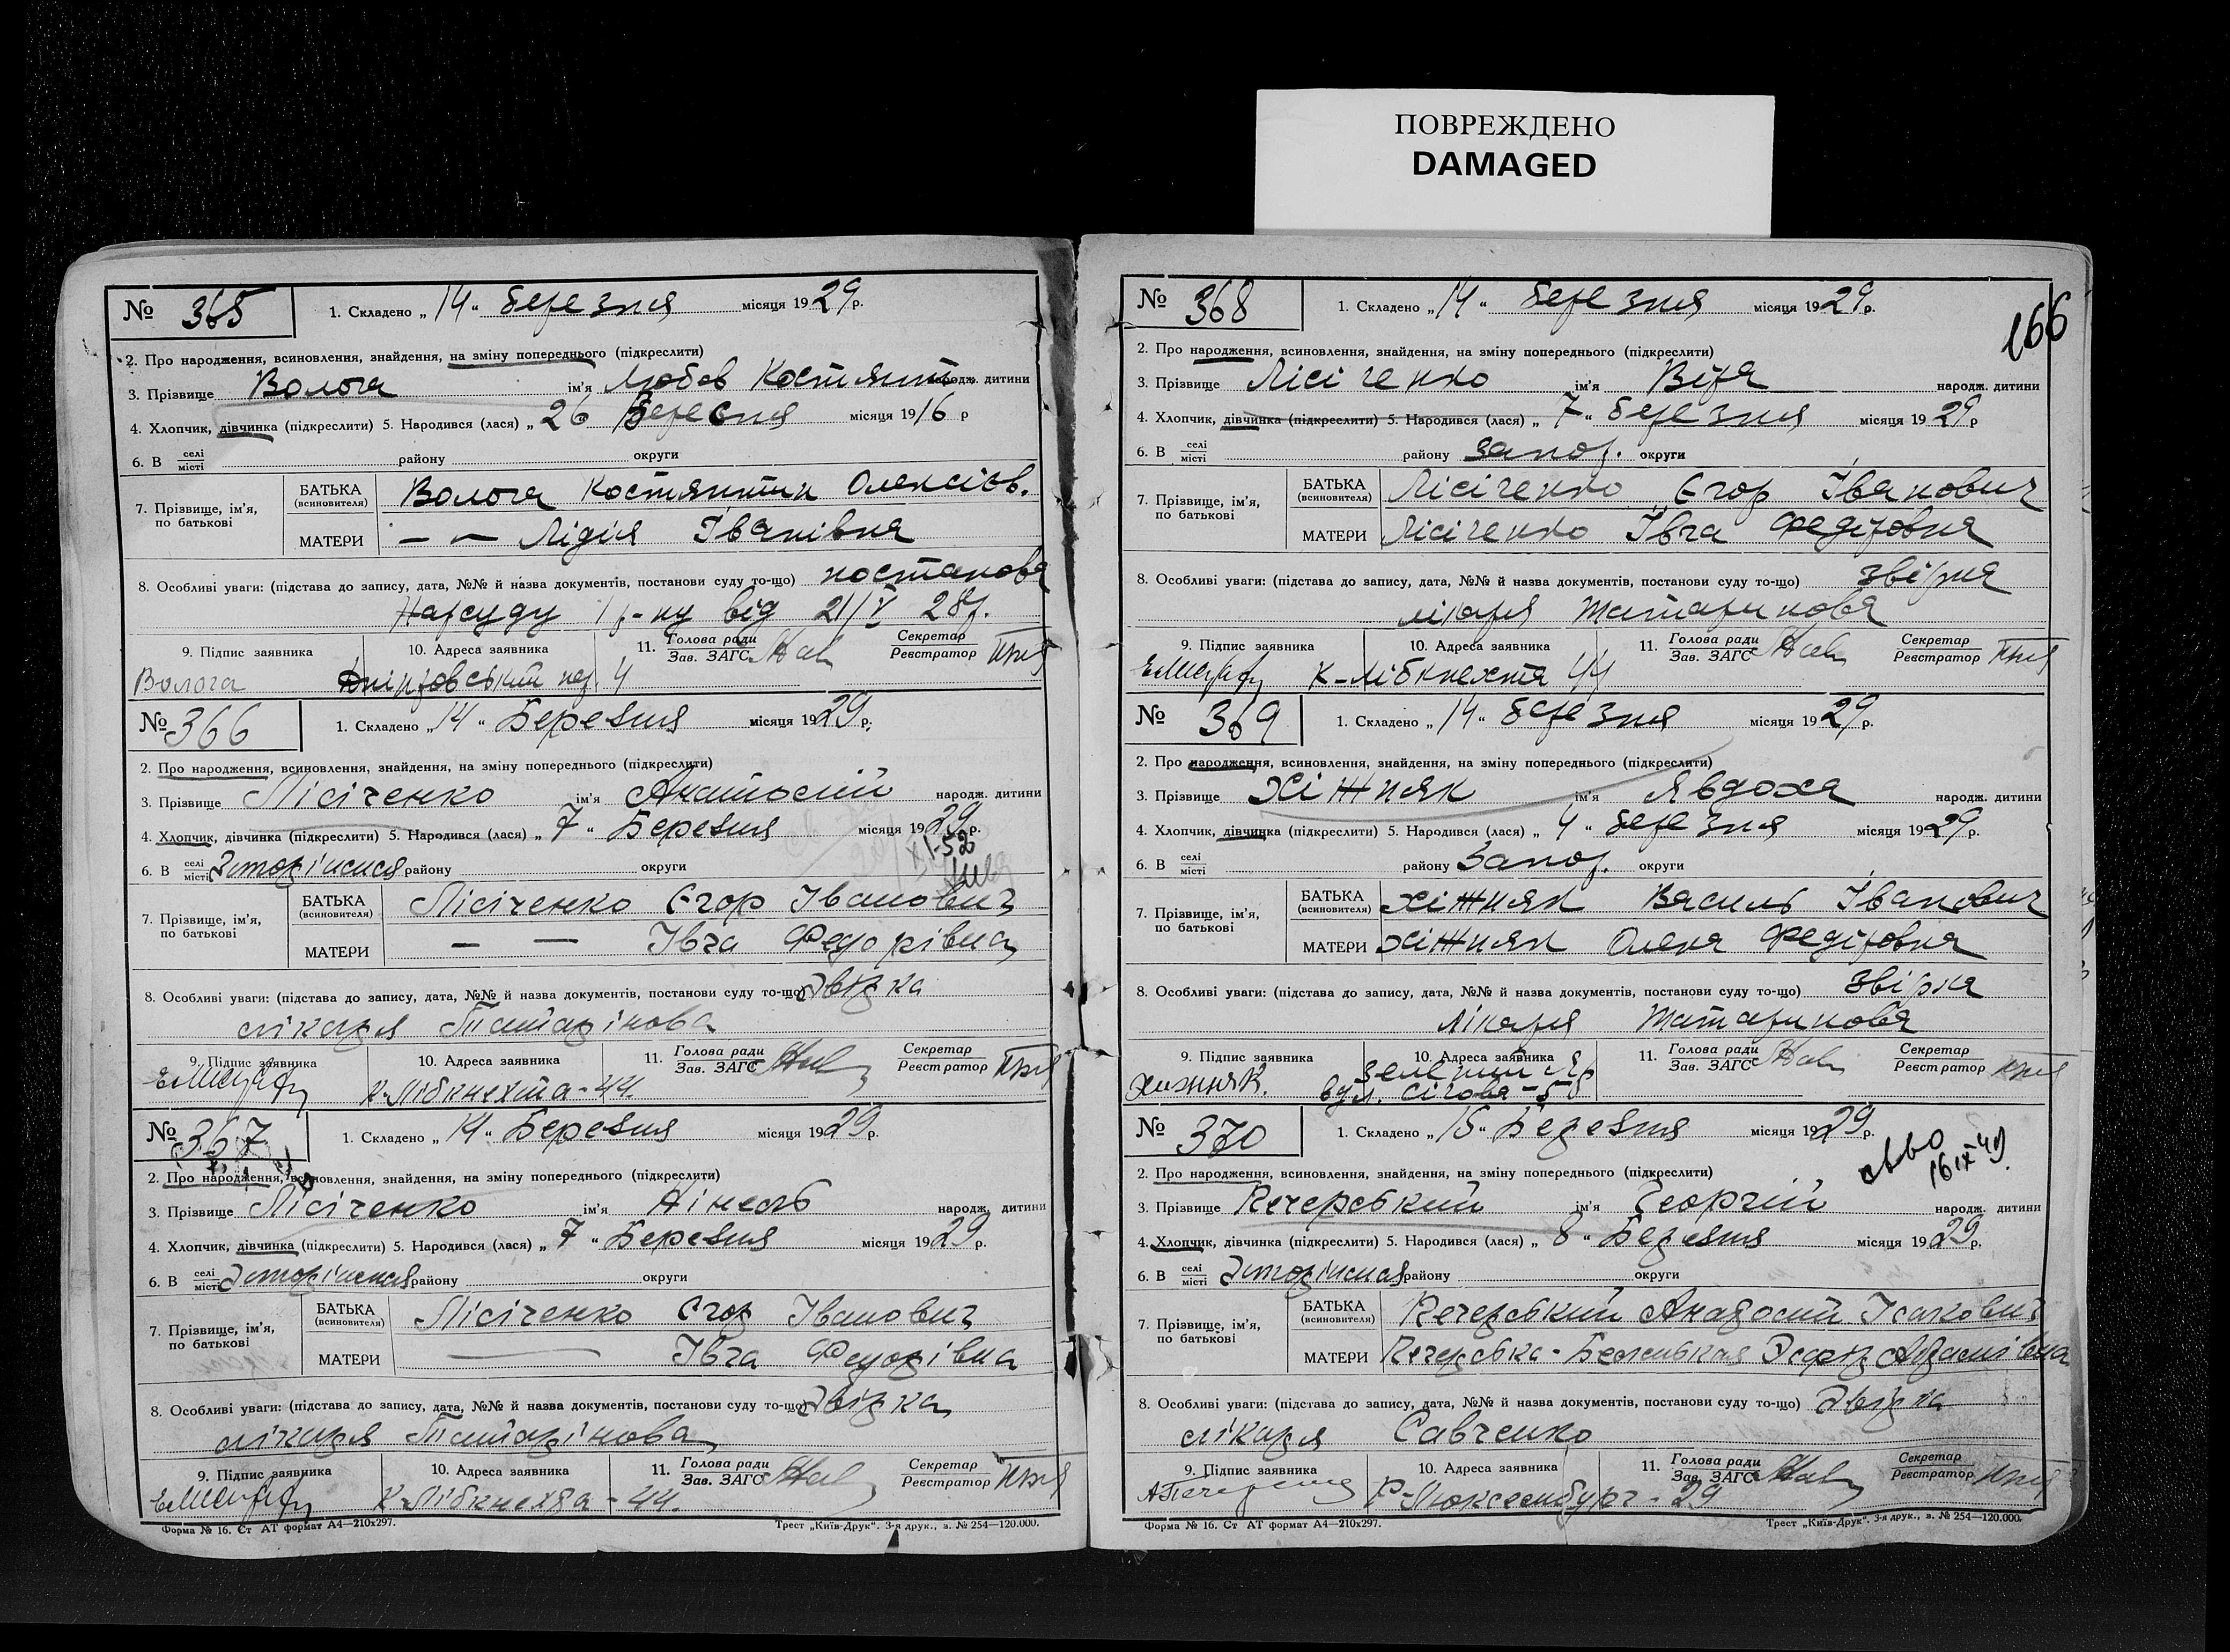 ПОВРЕЖДЕНО
DAMAGED
№ 365 1. Складено „14“ березня місяця 1929 р.
2. Про народження, всиновлення, знайдення, на зміну попереднього (підкреслити)
3. Прізвище Волога ім'я Любов Костянт. народж. дитини
4. Хлопчик, дівчинка (підкреслити) 5. Народився (лася) „26 Вересня місяця 1916 р
6. В селі місті району округи
7. Прізвище, ім'я, по батькові
БАТЬКА (всиновителя) Волога Костянтин Олексіїв.
МАТЕРИ — — Лідія Іванівна
8. Особливі уваги: (підстава до запису, дата, №№ й назва документів, постанови суду то-що) постанова
Нарсуду 1 р-ну від 21/V 28р.
9. Підпис заявника 10. Адреса заявника 11. Голова ради Зав. ЗАГС Секретар Реєстратор
Волога Дніпровський пер. 4
№ 366 1. Складено „14“ Березня місяця 1929 р.
2. Про народження, всиновлення, знайдення, на зміну попереднього (підкреслити)
3. Прізвище Лісіченко ім'я Анатолій народж. дитини
4. Хлопчик, дівчинка (підкреслити) 5. Народився (лася) „7“ Березня місяця 1929 р.
XI-52
6. В селі місті району округи
7. Прізвище, ім'я, по батькові
БАТЬКА (всиновителя) Лісіченко Єгор Іванович
МАТЕРИ — — Івга Федорівна
8. Особливі уваги: (підстава до запису, дата, №№ й назва документів, постанови суду то-що) Звірка
лікаря Татарінова
9. Підпис заявника 10. Адреса заявника 11. Голова ради Зав. ЗАГС Секретар Реєстратор
К-Лібкнехта-44.
№ 367 1. Складено „14“ Березня місяця 1929 р.
2. Про народження, всиновлення, знайдення, на зміну попереднього (підкреслити)
3. Прізвище Лісіченко ім'я Нінель народж. дитини
4. Хлопчик, дівчинка (підкреслити) 5. Народився (лася) „7“ Березня місяця 1929 р.
6. В селі місті району округи
7. Прізвище, ім'я, по батькові
БАТЬКА (всиновителя) Лісіченко Єгор Іванович
МАТЕРИ — Івга Федорівна
8. Особливі уваги: (підстава до запису, дата, №№ й назва документів, постанови суду то-що) Звірка
лікаря Татарінова
9. Підпис заявника 10. Адреса заявника 11. Голова ради Зав. ЗАГС Секретар Реєстратор
К-Лібкнехта-44.
Форма № 16. Ст АТ формат А4—210х297. Трест „Київ-Друк“. 3-я друк., з. № 254—120.000.
166
№ 368 1. Складено „14“ березня місяця 1929 р.
2. Про народження, всиновлення, знайдення, на зміну попереднього (підкреслити)
3. Прізвище Лісіченко ім'я Віра народж. дитини
4. Хлопчик, дівчинка (підкреслити) 5. Народився (лася) „7“ березня місяця 1929 р
6. В селі місті району Запор. округи
7. Прізвище, ім'я, по батькові
БАТЬКА (всиновителя) Лісіченко Єгор Іванович
МАТЕРИ Лісіченко Івга Федіровна
8. Особливі уваги: (підстава до запису, дата, №№ й назва документів, постанови суду то-що) звірка
лікаря Татаринова
9. Підпис заявника 10. Адреса заявника 11. Голова ради Зав. ЗАГС Секретар Реєстратор
К-Лібкнехта 44
№ 369 1. Складено „14“ березня місяця 1929 р.
2. Про народження, всиновлення, знайдення, на зміну попереднього (підкреслити)
3. Прізвище Хіжняк ім'я Явдоха народж. дитини
4. Хлопчик, дівчинка (підкреслити) 5. Народився (лася) „4“ березня місяця 1929 р.
6. В селі місті району Запор. округи
7. Прізвище, ім'я, по батькові
БАТЬКА (всиновителя) Хіжняк Василь Іванович
МАТЕРИ Хіжняк Олена Федіровна
8. Особливі уваги: (підстава до запису, дата, №№ й назва документів, постанови суду то-що) звірка
лікаря Татаринова
9. Підпис заявника 10. Адреса заявника 11. Голова ради Зав. ЗАГС Секретар Реєстратор
Хижняк. Зелений Яр
вул. Сігова-58
№ 370 1. Складено „15“ Березня місяця 1929 р.
16 IX 49.
2. Про народження, всиновлення, знайдення, на зміну попереднього (підкреслити)
3. Прізвище Печерський ім'я Георгій народж. дитини
4. Хлопчик, дівчинка (підкреслити) 5. Народився (лася) „8“ Березня місяця 1929 р.
6. В селі місті району округи
7. Прізвище, ім'я, по батькові
БАТЬКА (всиновителя) Печерський Ісакович
МАТЕРИ Печерська-
8. Особливі уваги: (підстава до запису, дата, №№ й назва документів, постанови суду то-що) Звірка
лікаря Савченко
9. Підпис заявника 10. Адреса заявника 11. Голова ради Зав. ЗАГС Секретар Реєстратор
Р-Люксембург-29
Форма № 16. Ст АТ формат А4—210х297. Трест „Київ-Друк“. 3-я друк., в. № 254—120.000.